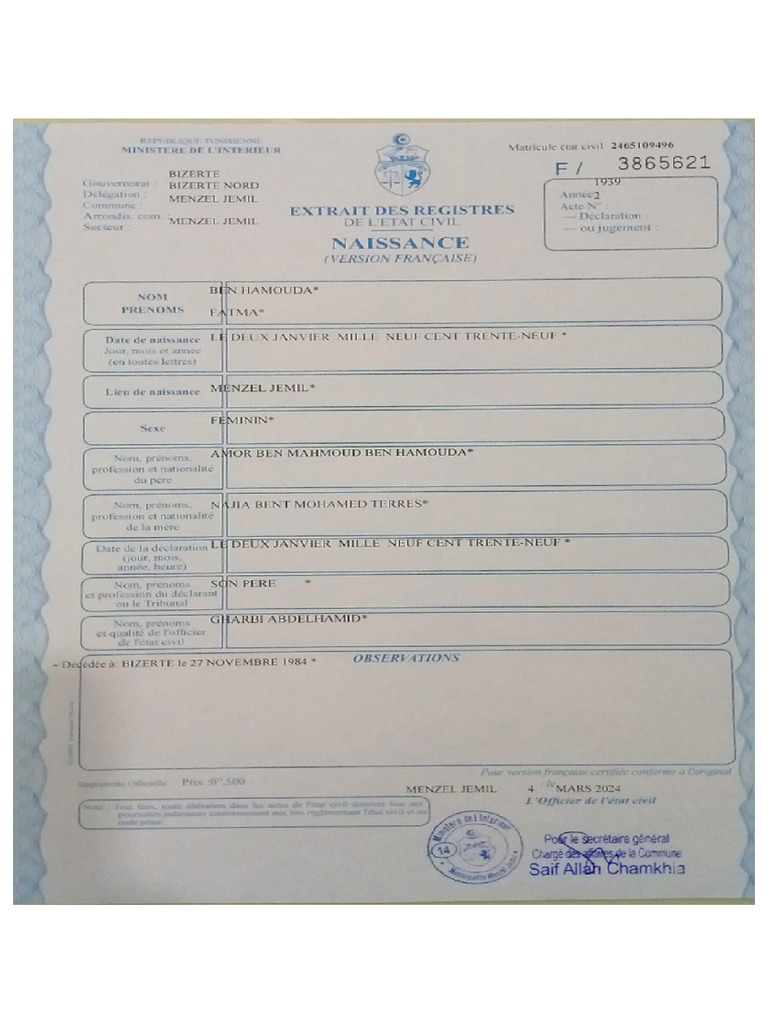 REPUBLIQUE TUNISIENNE
MINISTERE DE L'INTERIEUR
Matricule état civil 2465109496
F / 3865621
BIZERTE
Gouvernorat : BIZERTE NORD
Délégation :
Commune : MENZEL JEMIL
Arrondis. com.
Secteur : MENZEL JEMIL
1939
Année 2
Acte N° :
— Déclaration :
— ou jugement :
EXTRAIT DES REGISTRES
DE L'ETAT CIVIL
NAISSANCE
(VERSION FRANÇAISE)
NOM BEN HAMOUDA*
PRENOMS FATMA*
Date de naissance LE DEUX JANVIER MILLE NEUF CENT TRENTE-NEUF *
Jour, mois et année
(en toutes lettres)
Lieu de naissance MENZEL JEMIL*
Sexe FEMININ*
Nom, prénoms, AMOR BEN MAHMOUD BEN HAMOUDA*
profession et nationalité
du père
Nom, prénoms, NAJIA BENT MOHAMED TERRES*
profession et nationalité
de la mère
Date de la déclaration LE DEUX JANVIER MILLE NEUF CENT TRENTE-NEUF *
(jour, mois,
année, heure)
Nom, prénoms SON PERE *
et profession du déclarant
ou le Tribunal
Nom, prénoms GHARBI ABDELHAMID*
et qualité de l'officier
de l'état civil
OBSERVATIONS
- Décédée à: BIZERTE le 27 NOVEMBRE 1984 *
Pour version française certifiée conforme à l'original
Imprimerie Officielle Prix :0ᴰᵀ,500
MENZEL JEMIL le 4 MARS 2024
L'Officier de l'état civil
Nota : Tout faux, toute altération dans les actes de l'état civil donnent lieu aux
poursuites judiciaires conformément aux lois réglementant l'état civil et au
code pénal
Ministère de l'Intérieur
14
Municipalité Menzel Jemil
Pour le secrétaire général
Chargé des affaires de la Commune
Saif Allah Chamkhia